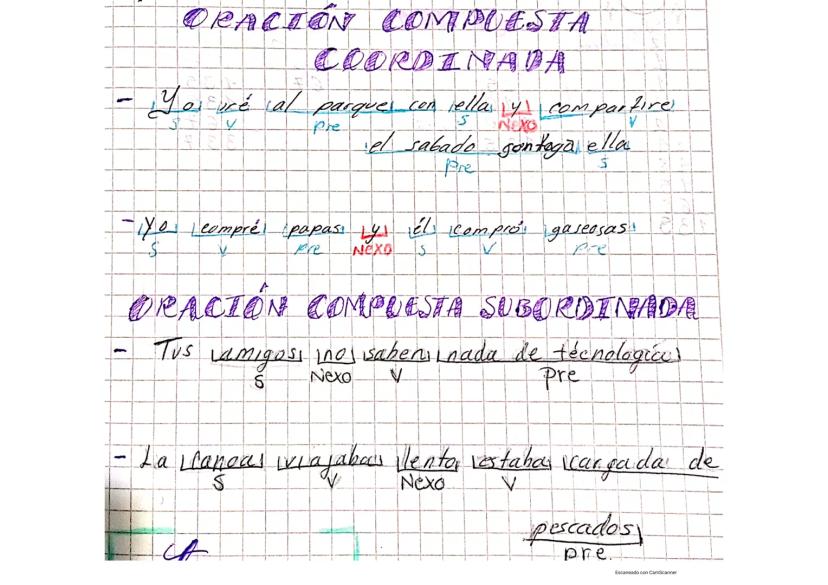 ORACIÓN COMPUESTA
COORDINADA
- Yo iré al parque con ella y compartire
S V Pre S NEXO V
el sabado gontoga ella
Pre S
- Yo compré papas y él compró gaseosas
S V Pre NEXO S V Pre
ORACIÓN COMPUESTA SUBORDINADA
- Tus amigos no saben nada de técnología
S Nexo V Pre
- La canoa viajaba lento estaba cargada de
S V Nexo V
pescados
pre.
CA
Escaneado con CamScanner